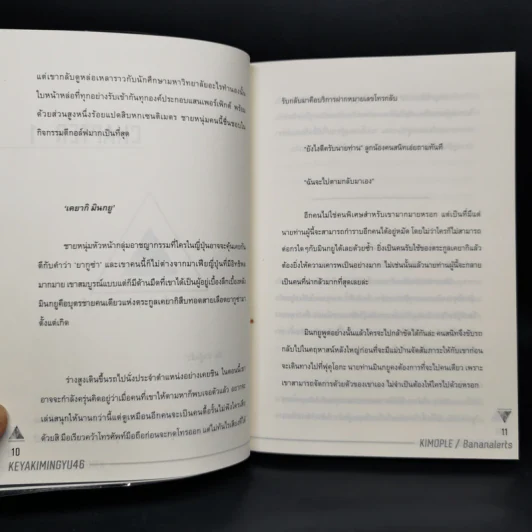 แต่เขากลับดูหล่อเหลาราวกับนักศึกษามหาวิทยาลัยอะไรทำนองนั้น
ใบหน้าหล่อที่ทุกอย่างรับเข้ากันทุกองค์ประกอบแสนเพอร์เฟ็กต์ พร้อม
ด้วยส่วนสูงหนึ่งร้อยแปดสิบหกเซนติเมตร ชายหนุ่มคนนี้ชื่นชอบใน
กิจกรรมตีกอล์ฟมากเป็นที่สุด
‘เคยากิ มินกยู’
ชายหนุ่มหัวหน้ากลุ่มอาชญากรรมที่ใครในญี่ปุ่นอาจจะคุ้นเคยกัน
ดีกับคำว่า ‘ยากูซ่า’ และเขาคนนี้ก็ไม่ต่างจากมาเฟียญี่ปุ่นที่มีอิทธิพล
มากมาย เขาสมบูรณ์แบบแต่ก็มีด้านมืดที่เขาได้เป็นผู้อยู่เบื้องลึกเบื้องหลัง
มินกยูคือบุตรชายคนเดียวแห่งตระกูลเคยากิสืบทอดสายเลือดยากูซ่ามา
ตั้งแต่เกิด
ร่างสูงเดินขึ้นรถไปนั่งประจำตำแหน่งอย่างเคยชิน ในตอนนี้เขา
อาจจะกำลังครุ่นคิดอยู่ว่าเมื่อคนที่เขาให้ตามหาก็พบเจอตัวแล้ว
เล่นสนุกให้นานกว่านี้แต่ดูเหมือนอีกคนจะเป็นคนดื้อรั้นไม่ฟังใคร
ด้วยสิ มือเรียวคว้าโทรศัพท์มือถือก่อนจะกดโทรออก แต่ไม่ทันไรเสียงที่ได้
10
KEYAKIMINGYU46
รับกลับมาคือบริการฝากหมายเลขโทรกลับ
“ยังไงดีครับนายท่าน” ลูกน้องคนสนิทเอ่ยถามทันที
“ฉันจะไปตามกลับมาเอง”
อีกคนไม่ใช่คนพิเศษสำหรับเขามากมายหรอก แต่เป็นที่มีแต่
นายท่านผู้นี้จะสามารถกำราบอีกคนได้อยู่หมัด โดยไม่ว่าใครก็ไม่สามารถ
ต่อกรใดๆ กับมินกยูได้เลยด้วยซ้ำ ยิ่งเป็นคนรับใช้ของตระกูลเคยากิแล้ว
ต้องยิ่งให้ความเคารพเป็นอย่างมาก ไม่เช่นนั้นแล้วนายท่านผู้นี้จะกลาย
เป็นคนที่น่ากลัวมากที่สุดเลยล่ะ
มินกยูพูดอย่างนั้นแล้วใครจะไปกล้าขัดได้กันล่ะ คนสนิทจึงขับรถ
กลับไปในคฤหาสน์หลังใหญ่ก่อนที่จะมีแม่บ้านจัดสัมภาระให้กับเขาก่อน
จะเดินทางไปที่ฟุกุโอกะ นายท่านมินกยูคงต้องการที่จะไปคนเดียว เพราะ
เขาสามารถจัดการด้วยตัวของเขาเอง ไม่จำเป็นต้องให้ใครไปด้วยหรอก
11
KIMOPLE / Bananalerts